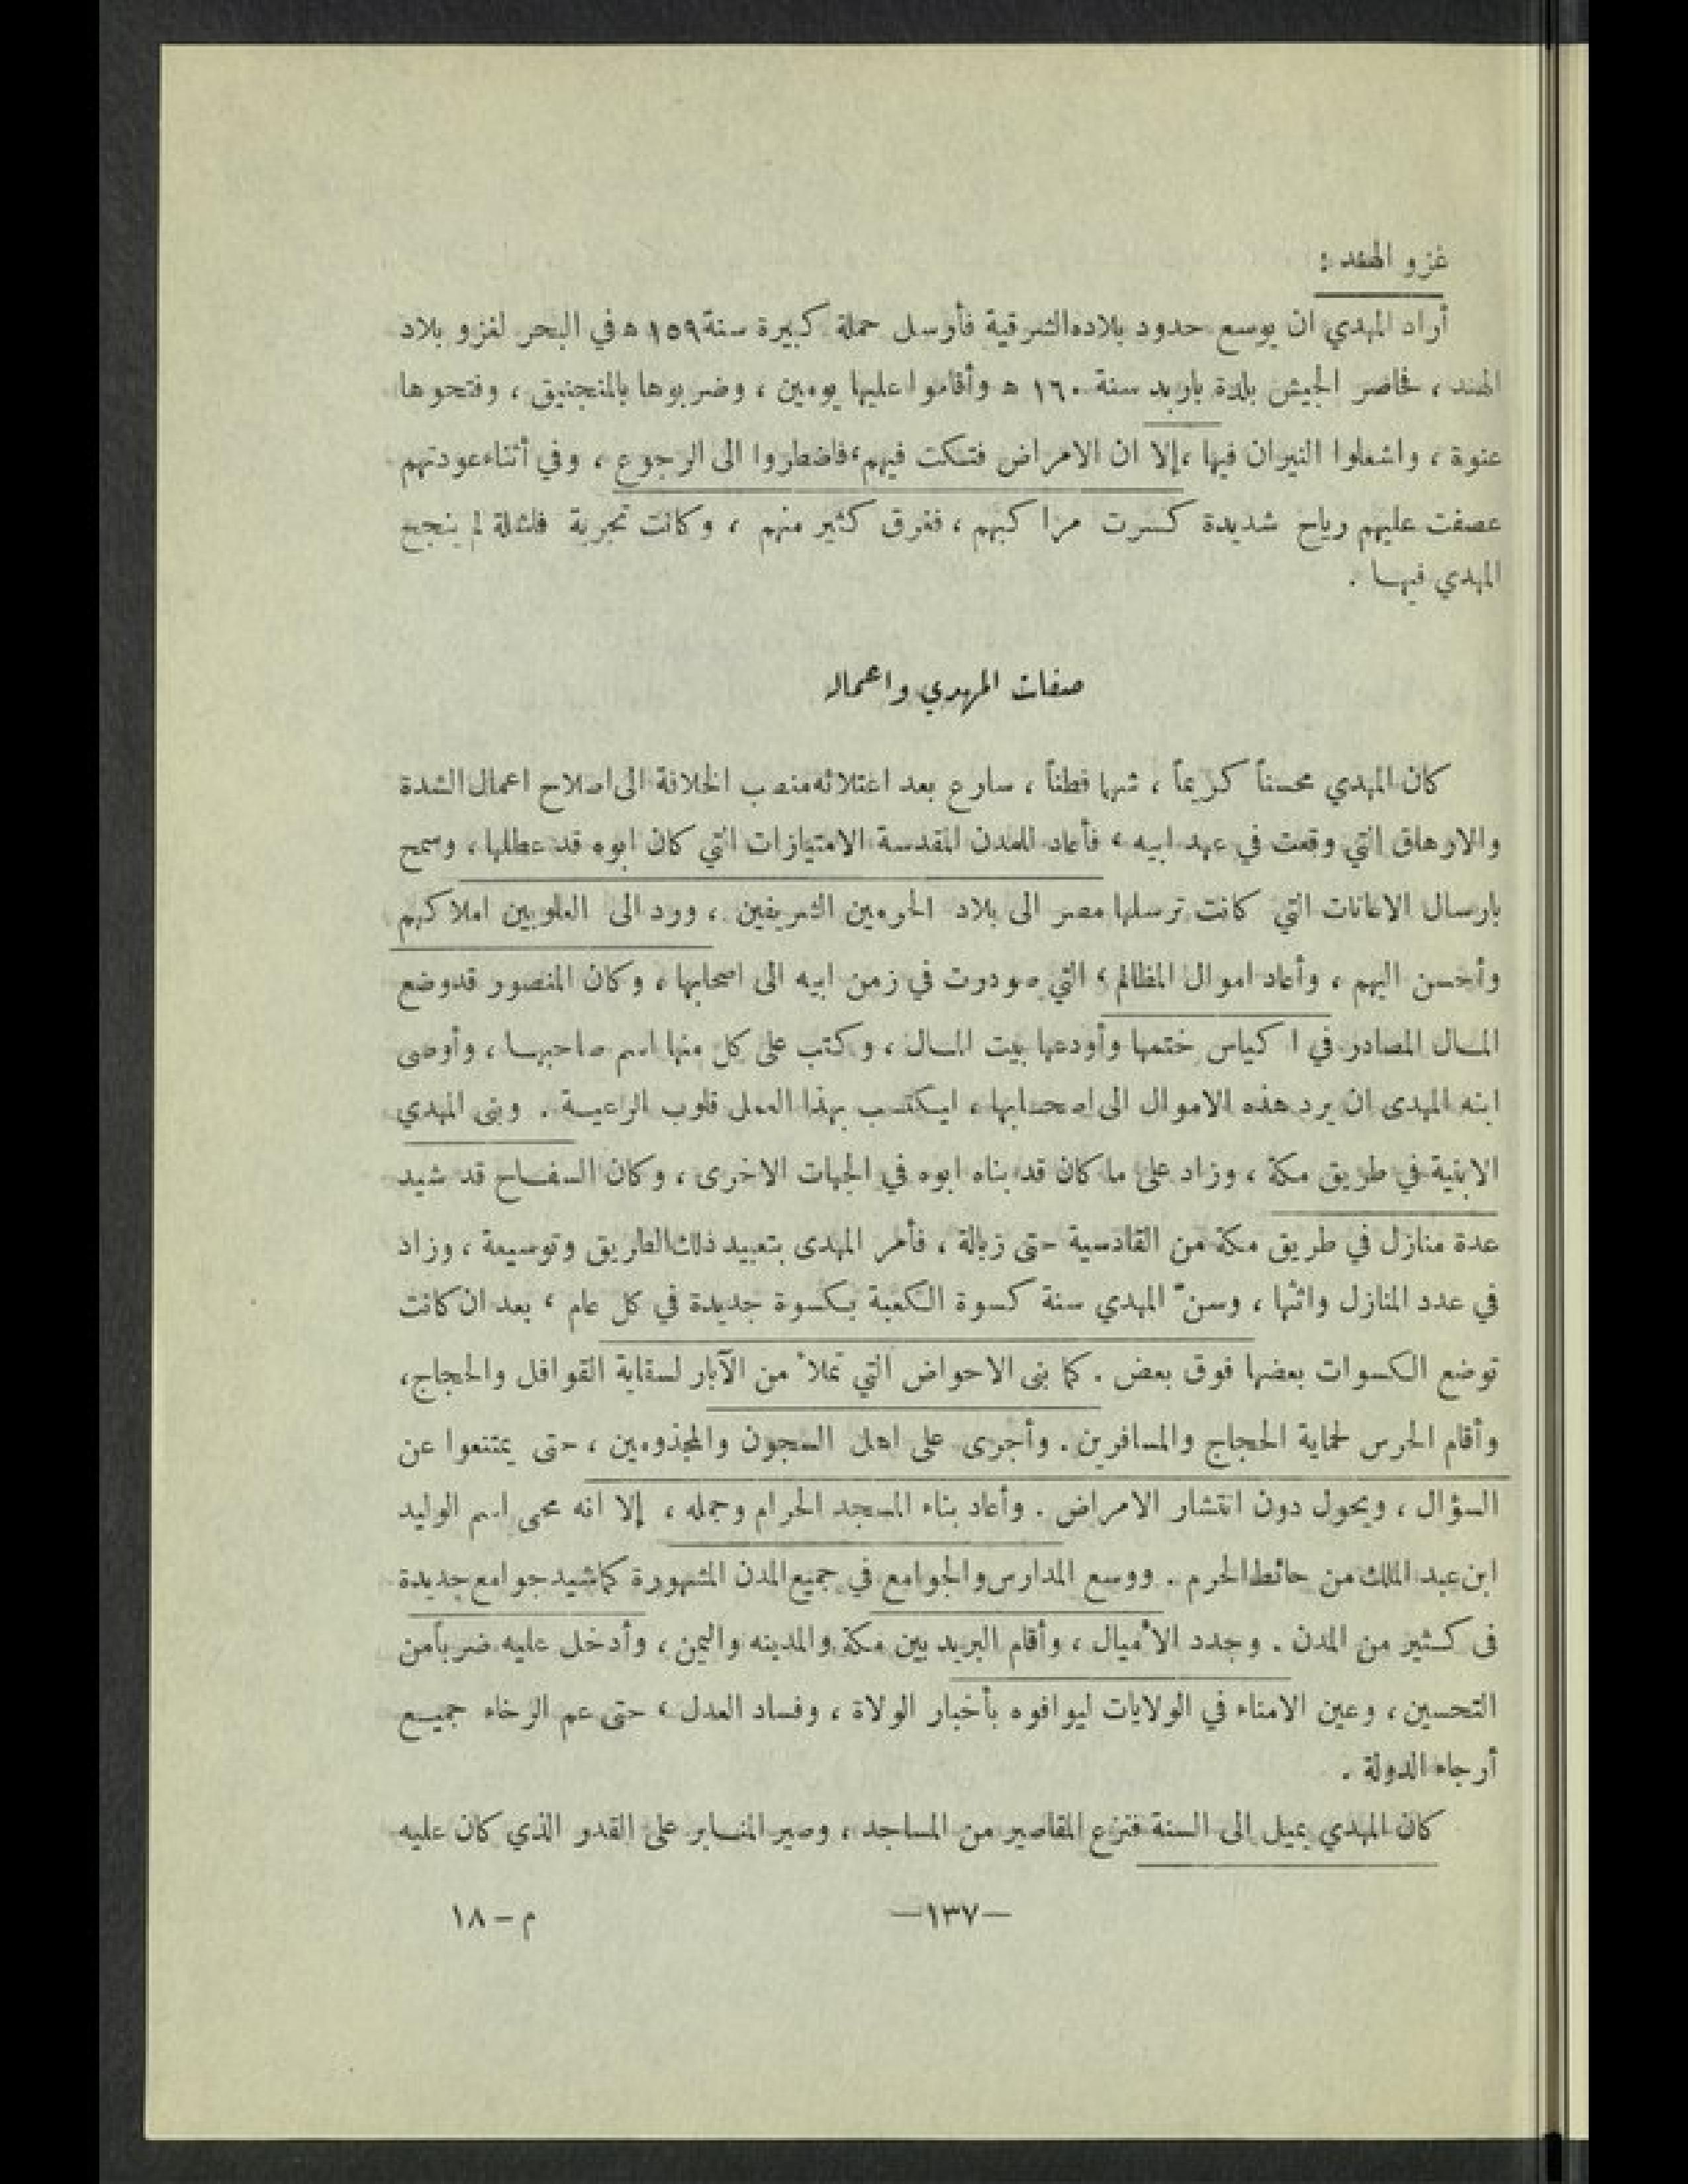 غزو الهند :
أراد المهدي ان يوسع حدود بلاده الشرقية فأرسل حملة كبيرة سنة ١٥٩ ه في البحر لغزو بلاد
الهند ، فحاصر الجيش بلدة باربد سنة ١٦٠ ه وأقاموا عليها يومين ، وضربوها بالمنجنيق ، وفتحوها
عنوة ، واشعلوا النيران فيها ، إلا ان الامراض فتكت فيهم ، فاضطروا الى الرجوع ، وفي أثناء عودتهم
عصفت عليهم رياح شديدة كسرت مراكبهم ، فغرق كثير منهم ، وكانت تجربة فاشلة لم ينجح
المهدي فيها .
صفات المهدي واعماله
كان المهدي محسناً كريماً ، شهما فطناً ، سارع بعد اعتلائه منصب الخلافة الى اصلاح اعمال الشدة
والارهاق التي وقعت في عهد ابيه ، فأعاد للمدن المقدسة الامتيازات التي كان ابوه قد عطلها ، وسمح
بارسال الاعانات التي كانت ترسلها مصر الى بلاد الحرمين الشريفين ، ورد الى العلويين املاكهم
وأحسن اليهم ، وأعاد اموال المظالم ، التي صودرت في زمن ابيه الى اصحابها ، وكان المنصور قد وضع
المال المصادر في اكياس ختمها وأودعها بيت المال ، وكتب على كل منها اسم صاحبها ، وأوصى
ابنه المهدى ان يرد هذه الاموال الى اصحابها ، ليكتسب بهذا العمل قلوب الرعية . وبنى المهدي
الابنية في طريق مكة ، وزاد على ما كان قد بناه ابوه في الجهات الاخرى ، وكان السفاح قد شيد
عدة منازل في طريق مكة من القادسية حتى زبالة ، فأمر المهدى بتعبيد ذلك الطريق وتوسيعة ، وزاد
في عدد المنازل واثثها ، وسنّ المهدي سنة كسوة الكعبة بكسوة جديدة في كل عام ، بعد ان كانت
توضع الكسوات بعضها فوق بعض . كما بنى الاحواض التي تملأ من الآبار لسقاية القوافل والحجاج ،
وأقام الحرس لحماية الحجاج والمسافرين . وأجرى على اهل السجون والمجذومين ، حتى يمتنعوا عن
السؤال ، ويحول دون انتشار الامراض . وأعاد بناء المسجد الحرام وجمله ، إلا انه محى اسم الوليد
ابن عبد الملك من حائط الحرم . ووسع المدارس والجوامع في جميع المدن المشهورة كما شيد جوامع جديدة
فى كثير من المدن . وجدد الأميال ، وأقام البريد بين مكة والمدينه واليمن ، وأدخل عليه ضرباً من
التحسين ، وعين الامناء في الولايات ليوافوه بأخبار الولاة ، وفساد العدل ، حتى عم الرخاء جميع
أرجاء الدولة .
كان المهدي يميل الى السنة فنزع المقاصير من المساجد ، وصير المنابر على القدر الذي كان عليه
—١٣٧—
م – ١٨